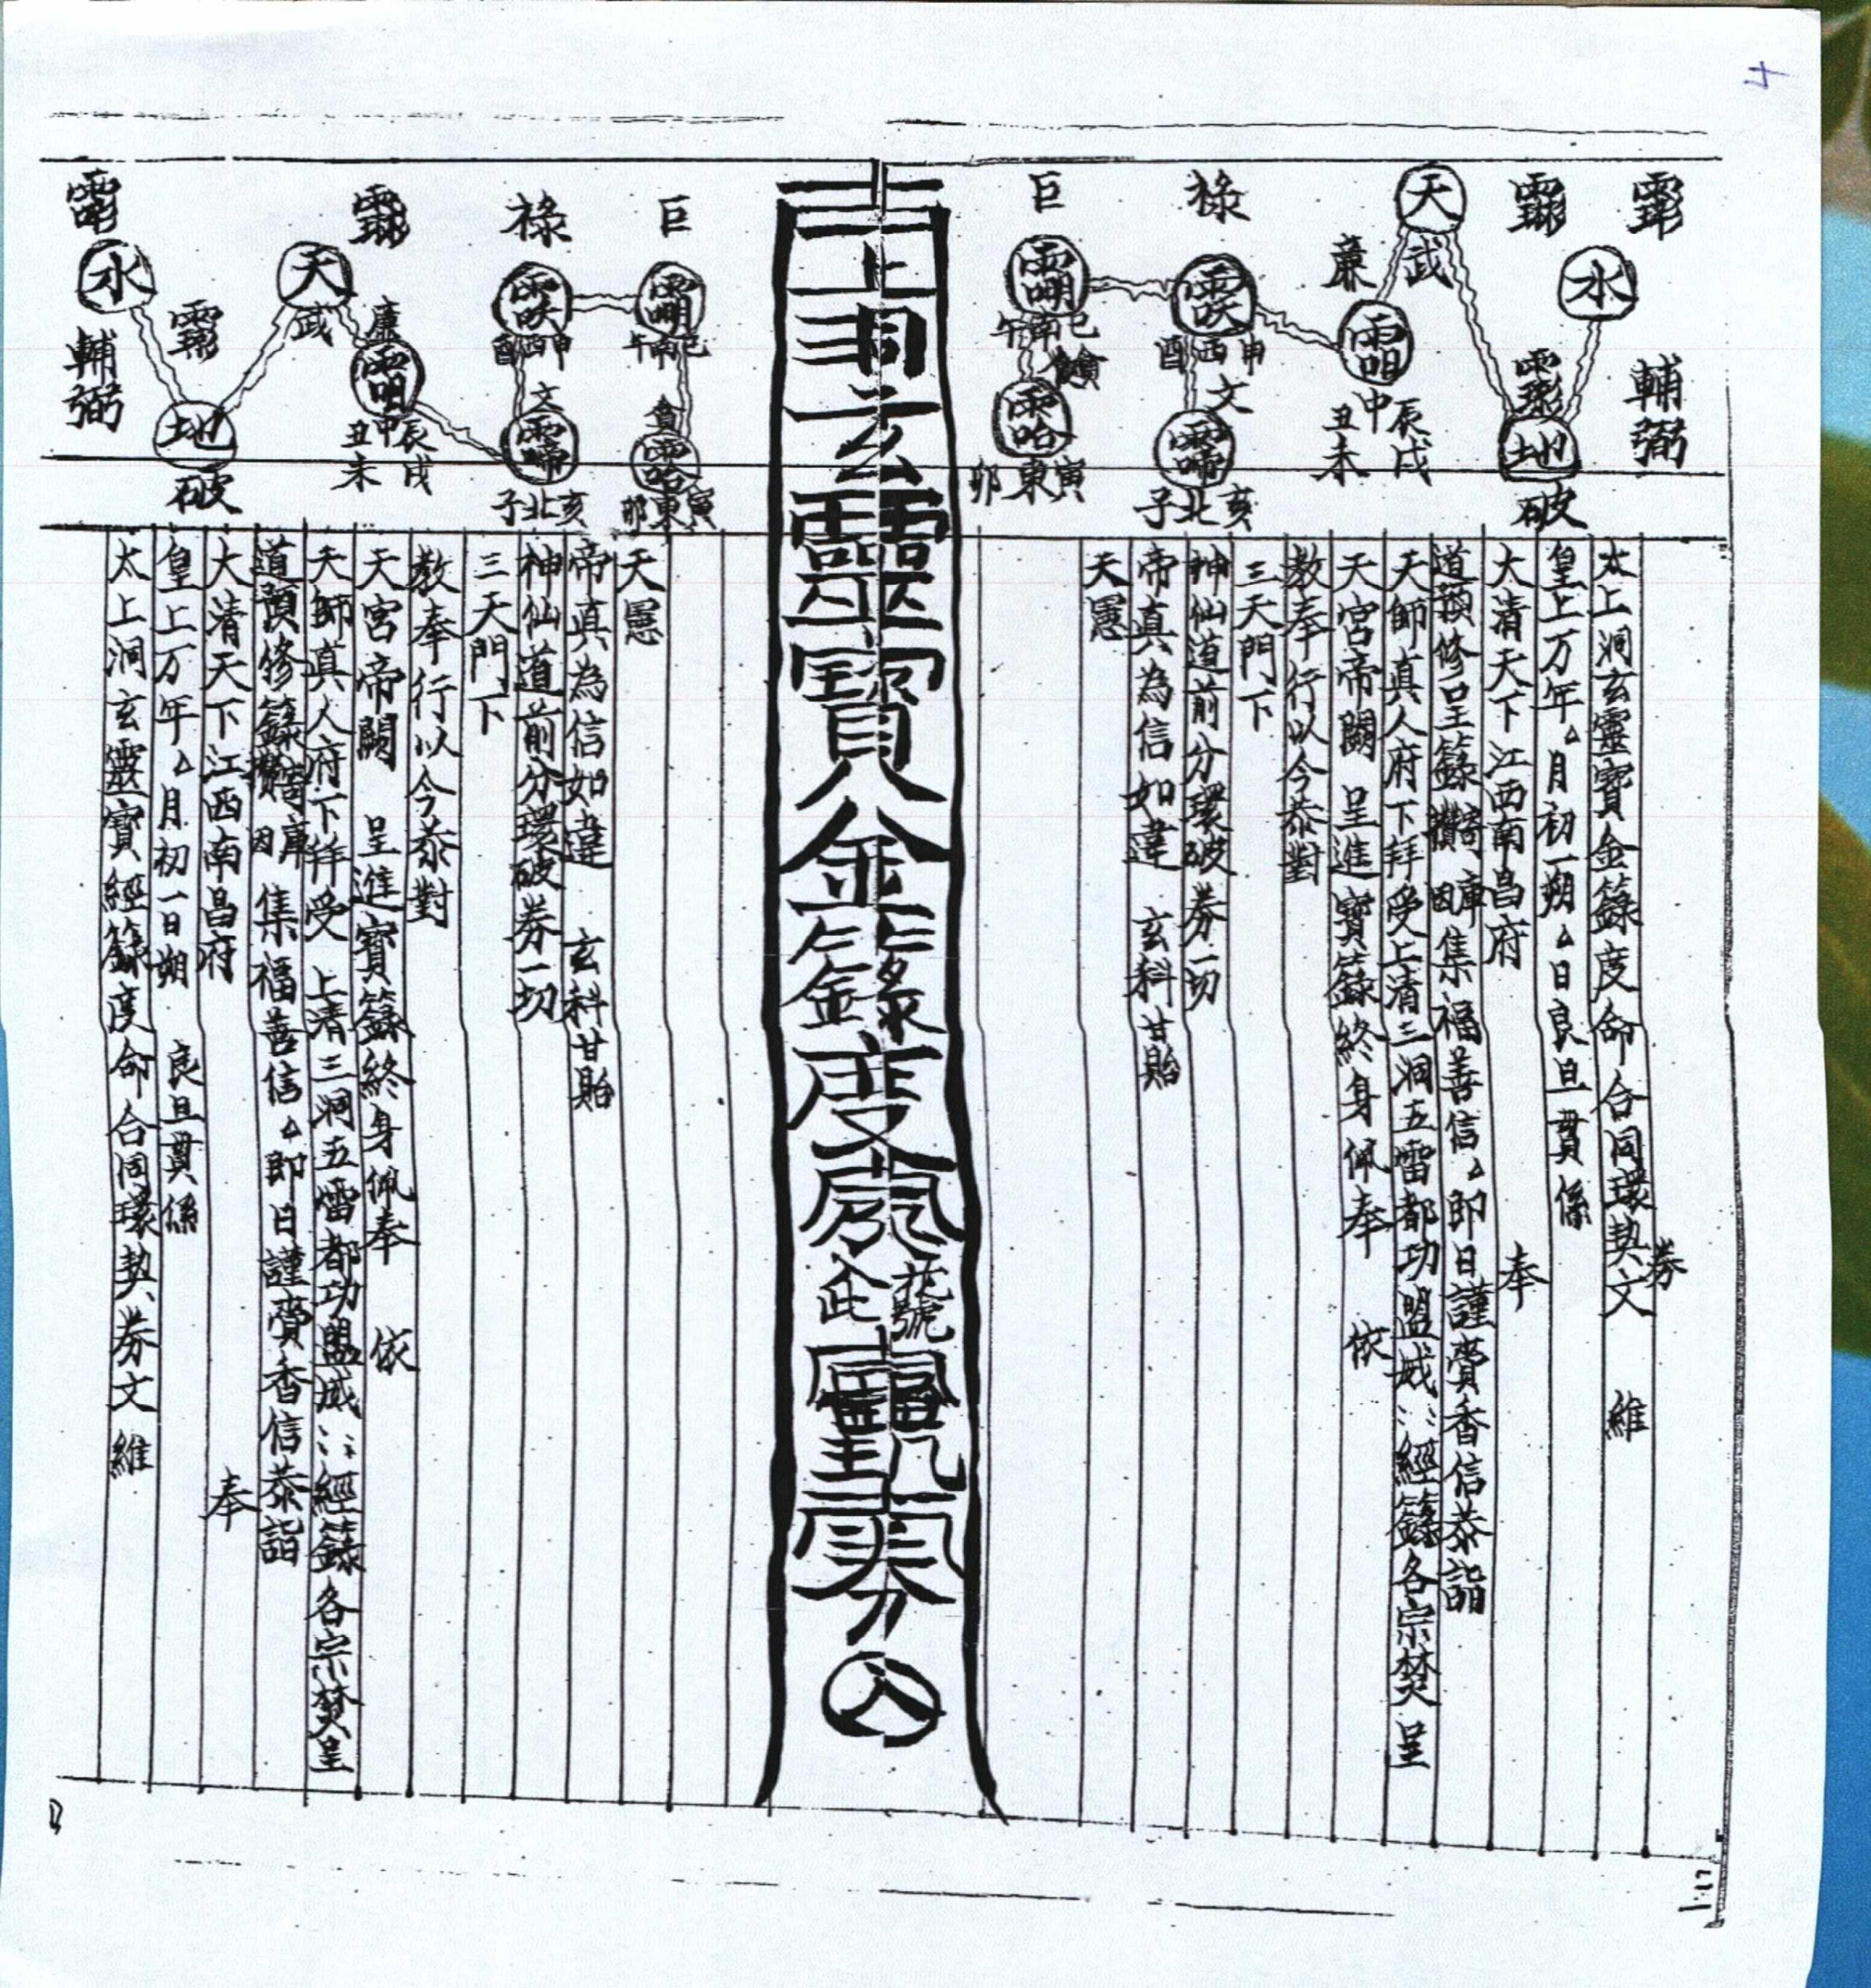 太上洞玄靈寶金籙度命合同環契文 維
券
皇上万年△月初一朔△日良旦貫係
大清天下江西南昌府 奉
道預修呈籙攢寄庫因集福善信△即日謹賫香信恭詣
天師真人府下拜受上清三洞五雷都功盟威∴經籙各宗焚呈
天宮帝闕 呈進寶籙終身佩奉 依
教奉行以今恭對
三天門下
神仙道前分環破券一切
帝真為信如違 玄科甘貽
天憲
天憲
帝真為信如違 玄科甘貽
神仙道前分環破券一切
三天門下
教奉行以今恭對
天宮帝闕 呈進寶籙終身佩奉 依
天師真人府下拜受 上清三洞五雷都功盟威∴經籙各宗焚呈
道預修籙攢寄庫因集福善信△即日謹賫香信恭詣
大清天下江西南昌府 奉
皇上万年△月初一日朔 良旦貫係
太上洞玄靈寶經籙度命合同環契券文 維
水
輔弼
天
武
廉
地
破
祿
巨
丑未
中
辰戌
酉西申
文
子北亥
午南巳
貪
卯東寅
巨
祿
天
武
廉
水
輔弼
地
破
午南巳
貪
卯東寅
酉西申
文
子北亥
丑未
中
辰戌
上洞玄靈寶金籙度
花號